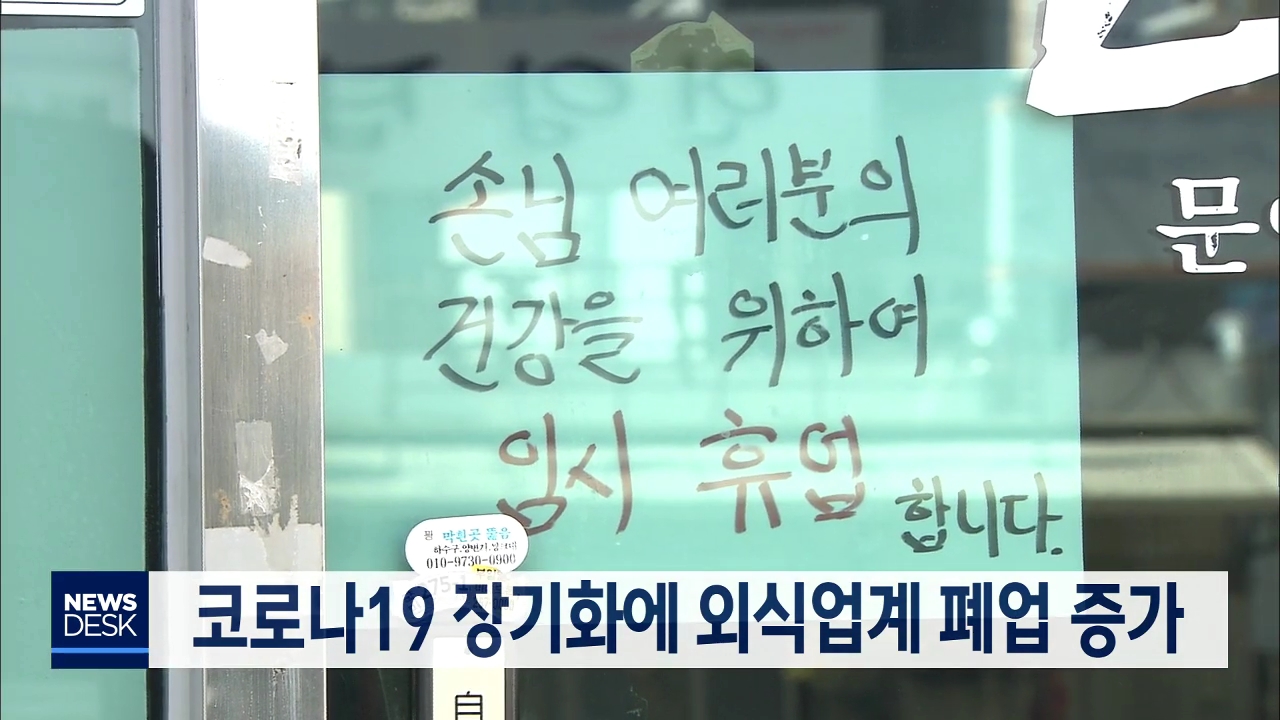 손님 여러분의
건강을 위하여
임시 휴업
합니다.
문
막힌곳 뚫음
하수구.양변기.싱크대
010-9730-0900
NEWS
DESK
코로나19 장기화에 외식업계 폐업 증가
自